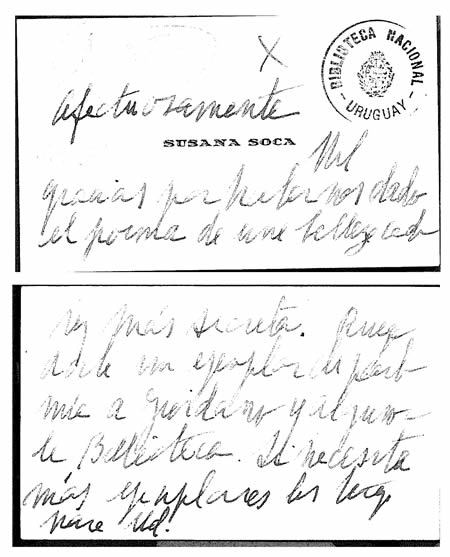 BIBLIOTECA NACIONAL
- URUGUAY -
X
Afectuosamente
SUSANA SOCA
Mil
gracias por habernos dado
el poema de una belleza cada
vez más secreta. 
un ejemplar de parte
mía a Giordano y alguno
Biblioteca. Si necesita
más ejemplares los tengo
para Ud.